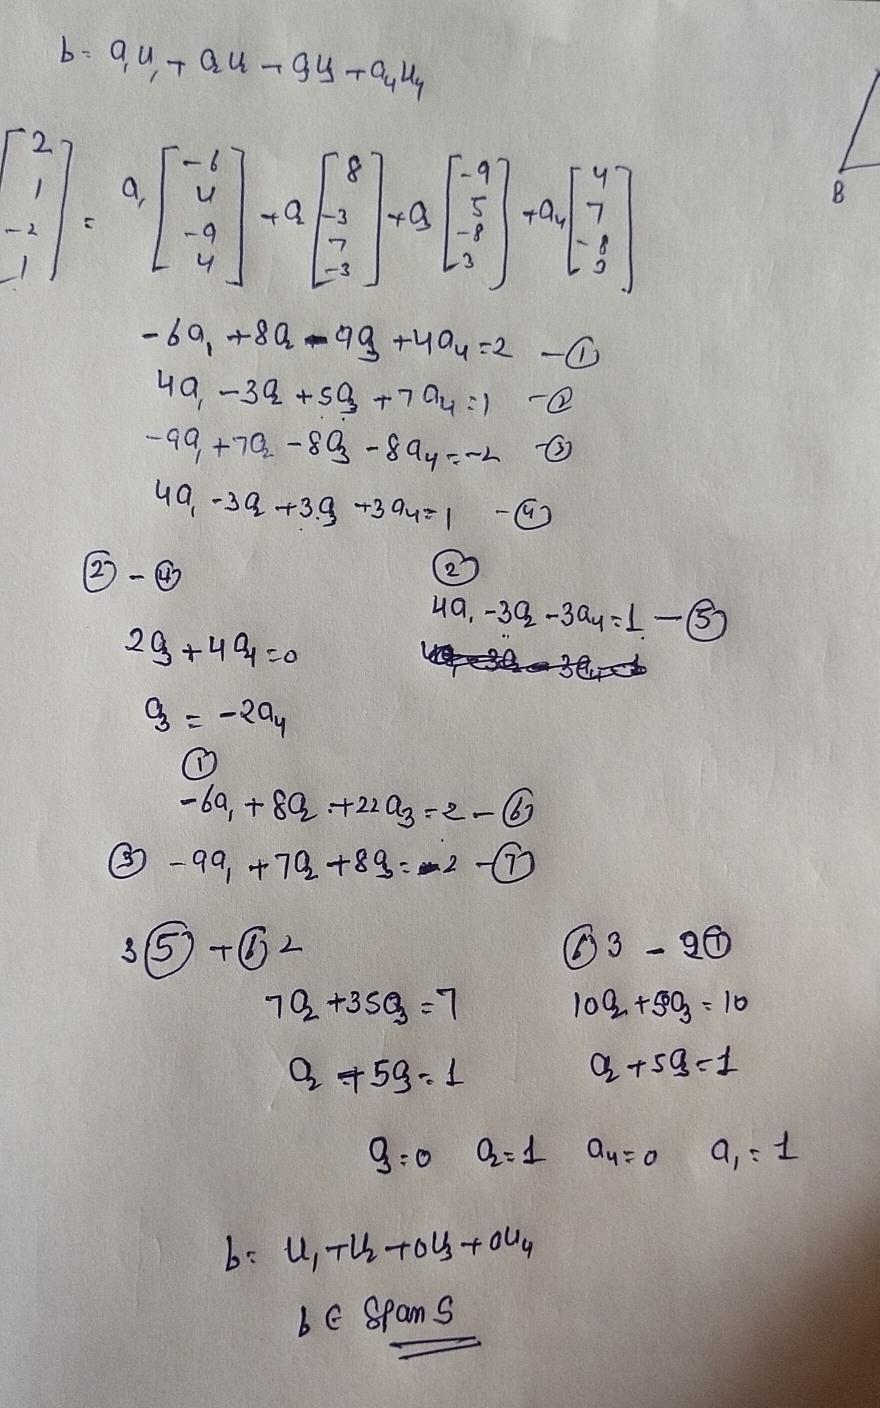 b = a₁u₁ + a₂u₂ + a₃u₃ + a₄u₄
[2 1 -2 1] = a₁ [-6 4 -9 4] + a₂ [8 -3 7 -3] + a₃ [-9 5 -8 3] + a₄ [4 7 -8 3]
B
-6a₁ + 8a₂ - 9a₃ + 4a₄ = 2 - ①
4a₁ - 3a₂ + 5a₃ + 7a₄ = 1 - ②
-9a₁ + 7a₂ - 8a₃ - 8a₄ = -2 - ③
4a₁ - 3a₂ + 3a₃ + 3a₄ = 1 - ④
② - ④
②
2a₃ + 4a₄ = 0
4a₁ - 3a₂ - 3a₄ = 1 - ⑤
a₃ = -2a₄
①
-6a₁ + 8a₂ + 22a₃ = 2 - ⑥
③ -9a₁ + 7a₂ + 8a₃ = -2 - ⑦
3⑤ + ⑥2
⑥3 - 2⑦
7a₂ + 35a₃ = 7
10a₂ + 50a₃ = 10
a₂ + 5a₃ = 1
a₂ + 5a₃ = 1
a₃ = 0 a₂ = 1 a₄ = 0 a₁ = 1
b = u₁ + u₂ + 0u₃ + 0u₄
b ∈ Span S